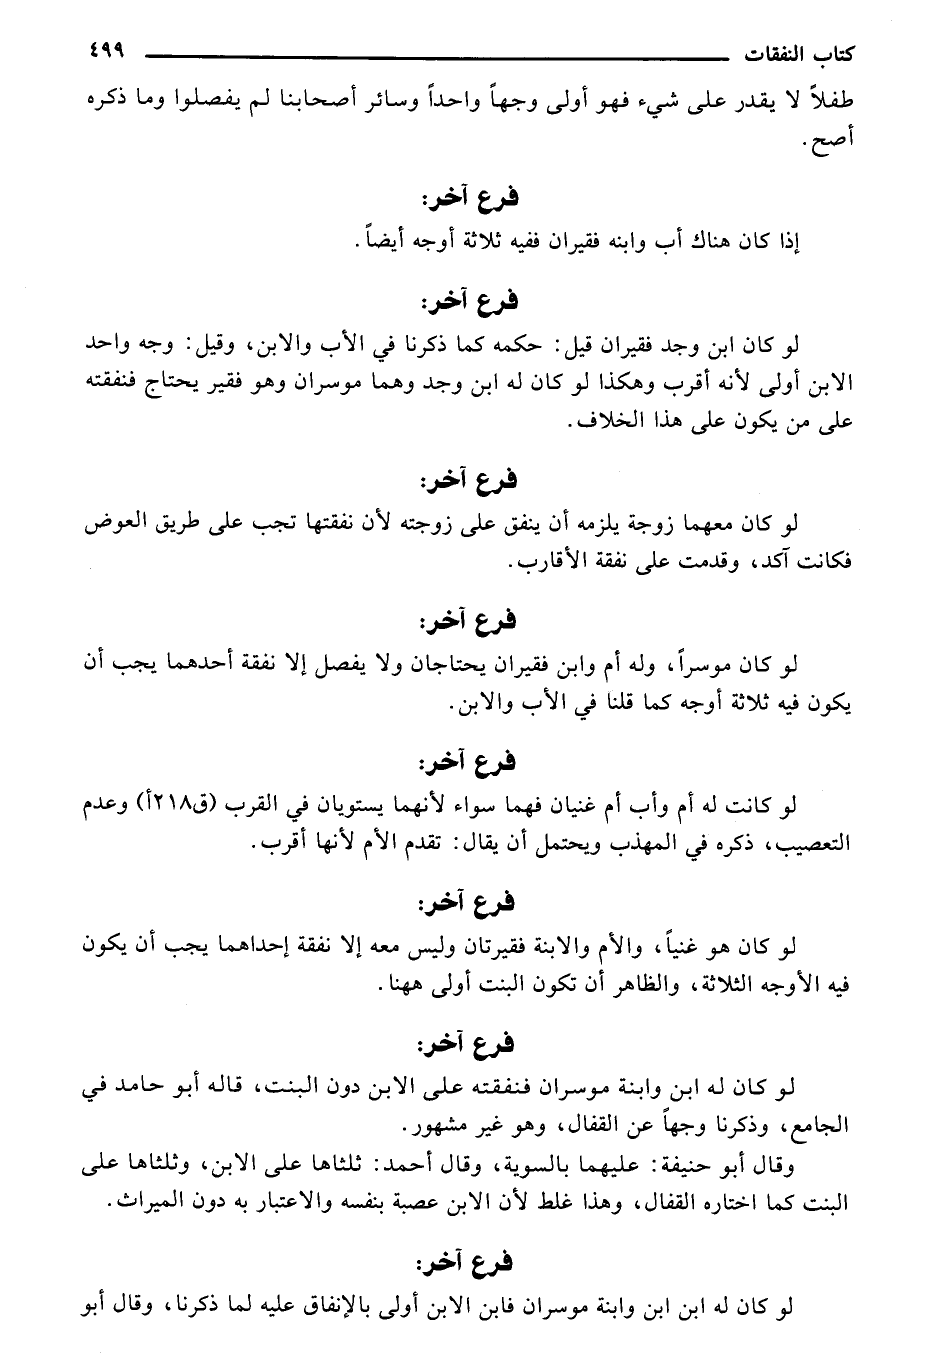 كتاب النفقات ٤٩٩
طفلاً لا يقدر على شيء فهو أولى وجهاً واحداً وسائر أصحابنا لم يفصلوا وما ذكره
أصح.
فرع آخر:
إذا كان هناك أب وابنه فقيران ففيه ثلاثة أوجه أيضاً.
فرع آخر:
لو كان ابن وجد فقيران قيل: حكمه كما ذكرنا في الأب والابن، وقيل: وجه واحد
الابن أولى لأنه أقرب وهكذا لو كان له ابن وجد وهما موسران وهو فقير يحتاج فنفقته
على من يكون على هذا الخلاف.
فرع آخر:
لو كان معهما زوجة يلزمه أن ينفق على زوجته لأن نفقتها تجب على طريق العوض
فكانت آكد، وقدمت على نفقة الأقارب.
فرع آخر:
لو كان موسراً، وله أم وابن فقيران يحتاجان ولا يفصل إلا نفقة أحدهما يجب أن
يكون فيه ثلاثة أوجه كما قلنا في الأب والابن.
فرع آخر:
لو كانت له أم وأب أم غنيان فهما سواء لأنهما يستويان في القرب (ق٢١٨أ) وعدم
التعصيب، ذكره في المهذب ويحتمل أن يقال: تقدم الأم لأنها أقرب.
فرع آخر:
لو كان هو غنياً، والأم والابنة فقيرتان وليس معه إلا نفقة إحداهما يجب أن يكون
فيه الأوجه الثلاثة، والظاهر أن تكون البنت أولى ههنا.
فرع آخر:
لو كان له ابن وابنة موسران فنفقته على الابن دون البنت، قاله أبو حامد في
الجامع، وذكرنا وجهاً عن القفال، وهو غير مشهور.
وقال أبو حنيفة: عليهما بالسوية، وقال أحمد: ثلثاها على الابن، وثلثاها على
البنت كما اختاره القفال، وهذا غلط لأن الابن عصبة بنفسه والاعتبار به دون الميراث.
فرع آخر:
لو كان له ابن ابن وابنة موسران فابن الابن أولى بالإنفاق عليه لما ذكرنا، وقال أبو